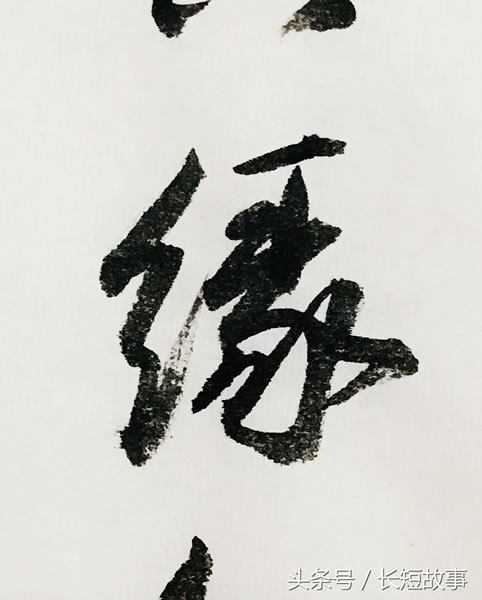 缘
头条号 / 长短故事